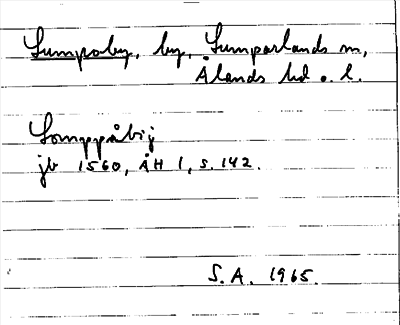 Sumpaby, by, Sumparlands sn,
Ålands hd o. l.
Somppåbij
jb 1560, ÅH 1, s. 142.
S.A. 1965.